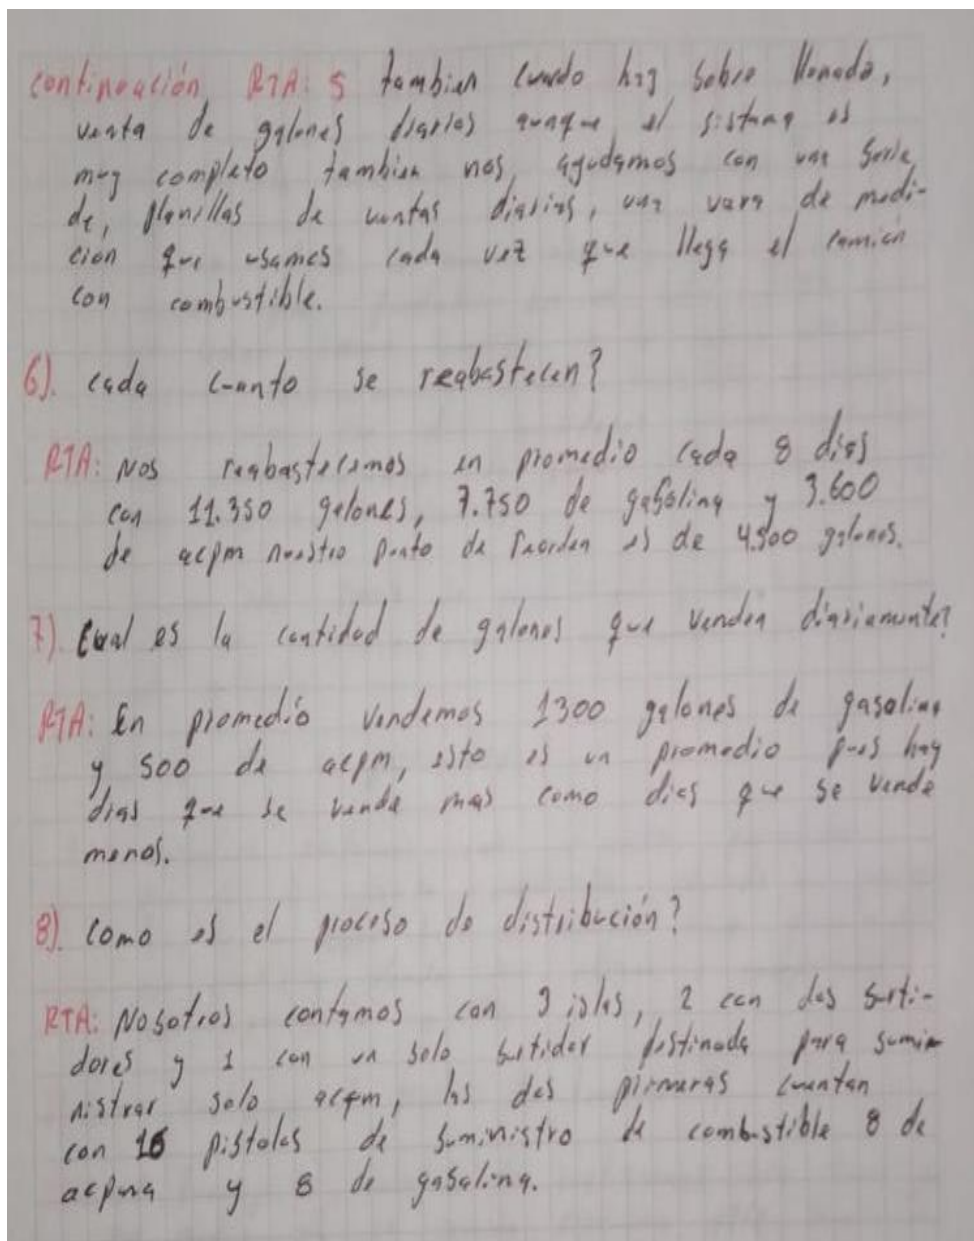 continuación RTA: 5 tambien cuando hay sobre llenado,
venta de galones diarios aunque el sistema es
muy completo tambien nos ayudamos con una serie
de, planillas de ventas diarias, una vara de medi-
ción que usamos cada vez que llega el camion
con combustible.
6). cada cuanto se reabastecen?
RTA: Nos reabastecemos en promedio cada 8 dias
con 11.350 galones, 7.750 de gasolina y 3.600
de acpm nuestro punto de reorden es de 4.500 galones.
7). Cual es la cantidad de galones que venden diariamente?
RTA: En promedio vendemos 1300 galones de gasolina
y 500 de acpm, esto es un promedio pues hay
dias que se vende mas como dias que se vende
menos.
8). como es el proceso de distribución?
RTA: Nosotros contamos con 3 islas, 2 con dos surti-
dores y 1 con un solo surtidor destinada para sumin
nistrar solo acpm, las dos primeras cuentan
con 16 pistolas de suministro de combustible 8 de
y 8 de gasolina.